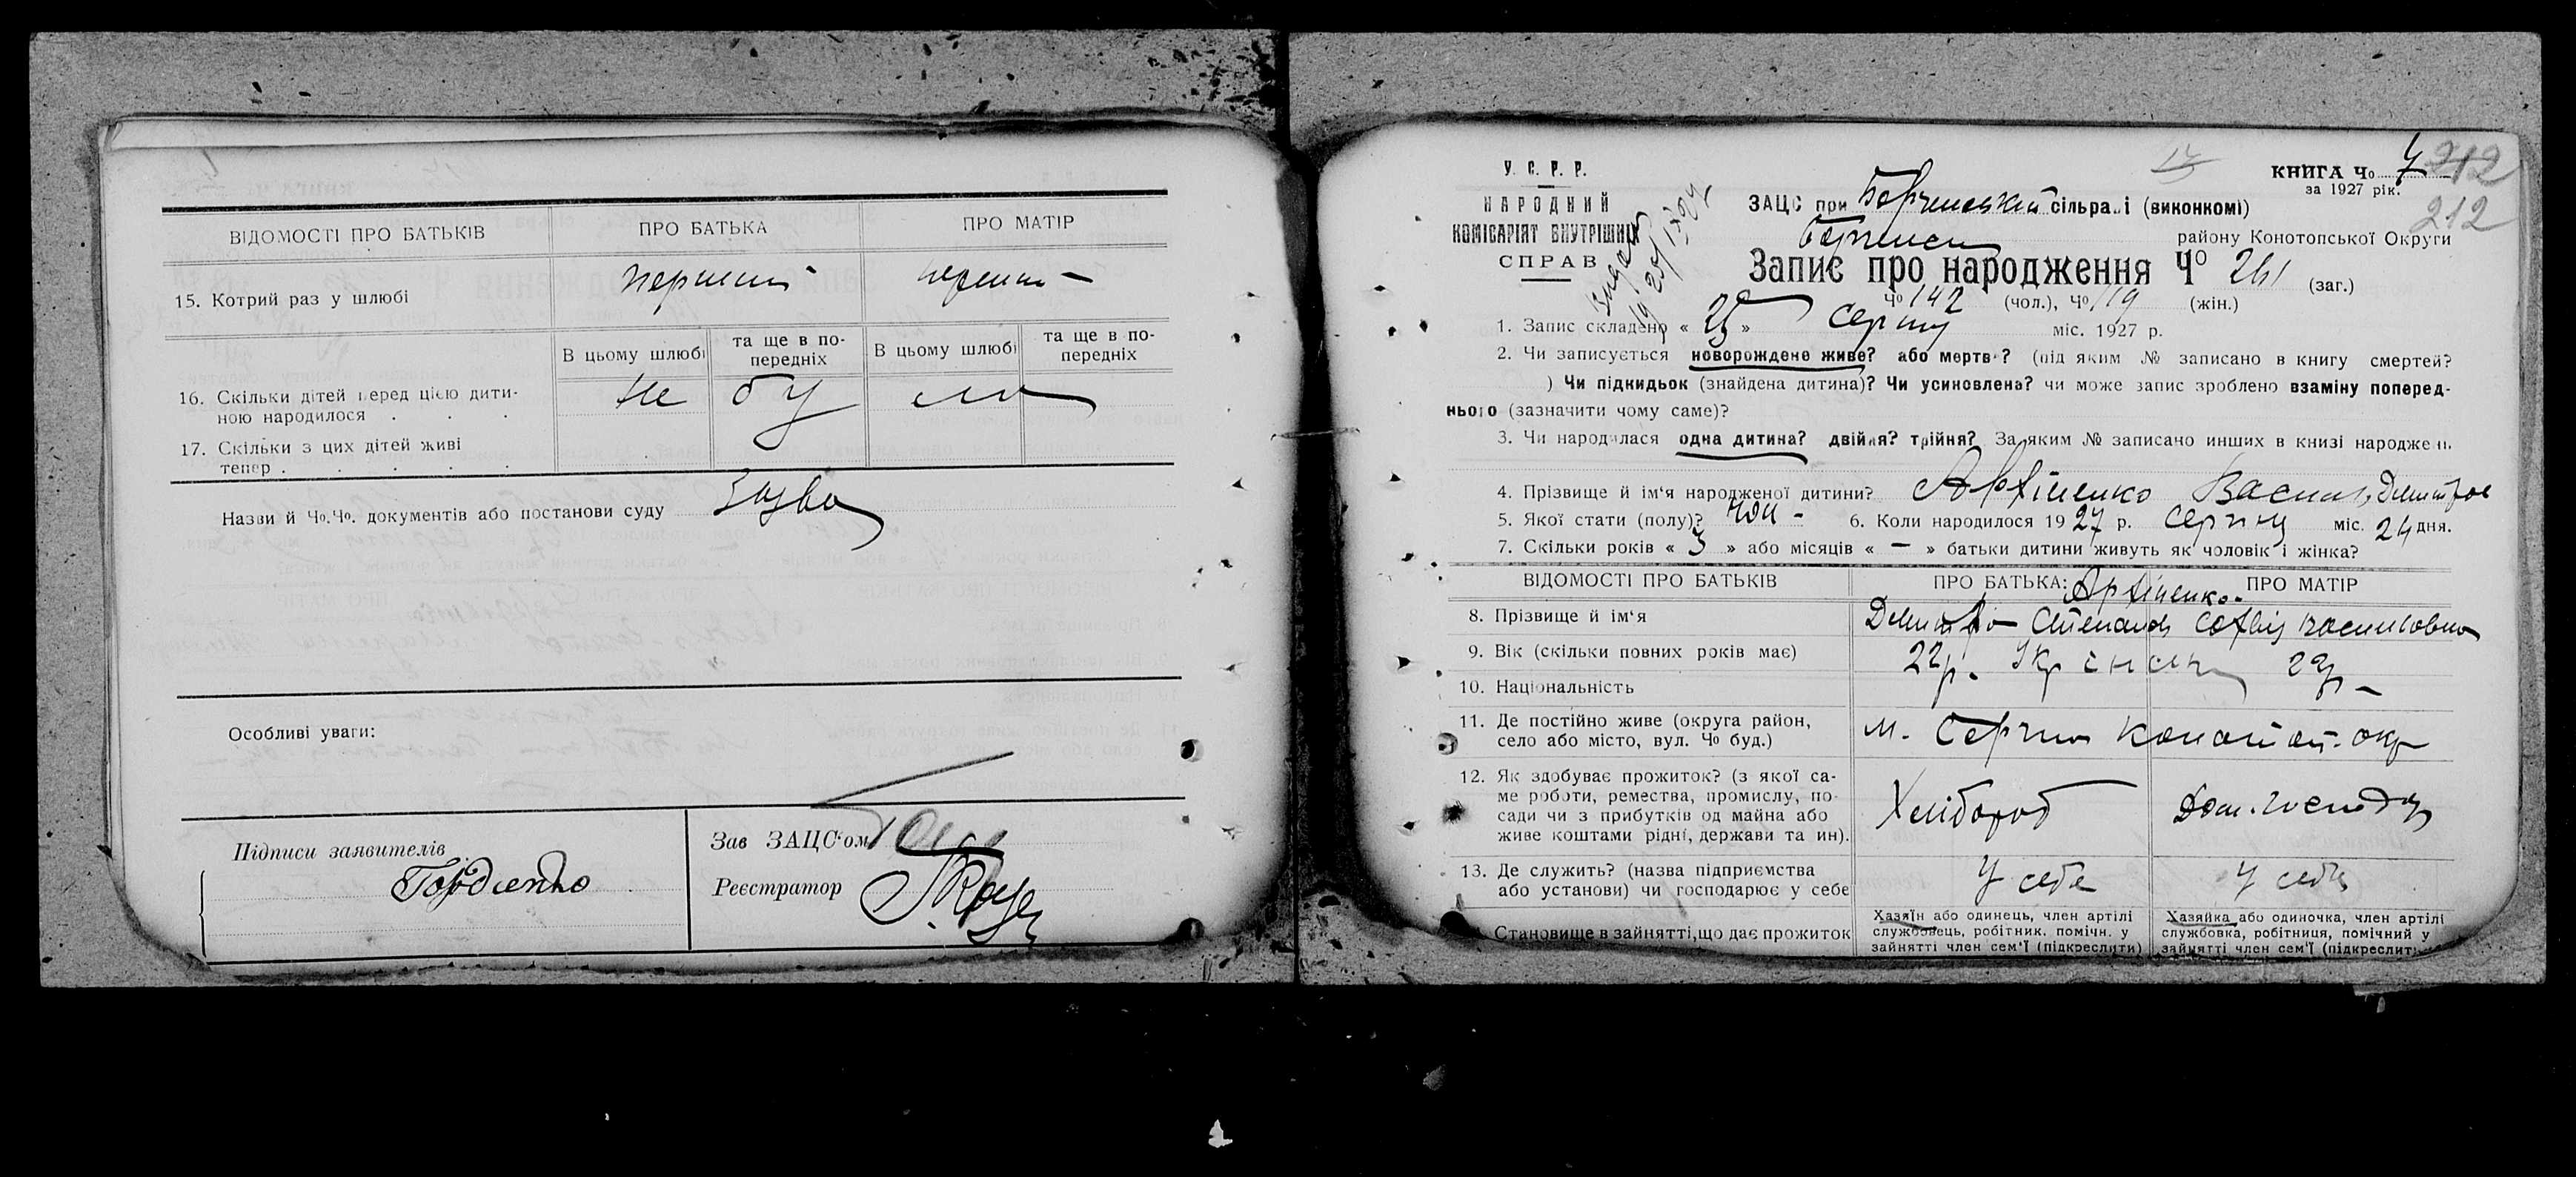 ВІДОМОСТІ ПРО БАТЬКІВ
ПРО БАТЬКА
ПРО МАТІР
15. Котрий раз у шлюбі
первий
первий –
В цьому шлюбі
та ще в по-
передніх
В цьому шлюбі
та ще в по-
передніх
16. Скільки дітей перед цією дити-
ною народилося . . .
Не було
17. Скільки з цих дітей живі
тепер . . . . .
Назви й Чо.Чо. документів або постанови суду
Заява
Особливі уваги:
Підписи заявителів
Гордієнко
Зав ЗАЦС‘ом
Реєстратор
У. С. Р. Р.
НАРОДНИЙ
КОМІСАРІЯТ ВНУТРІШНІХ
СПРАВ
17
КНИГА Чо 7 212
за 1927 рік.
212
ЗАЦС при Борзенській сільраді (виконкомі)
Борзенськ району Конотопської Округи
Запис про народження Чо 261 (заг.)
Чо 142 (чол.), Чо 119 (жін.)
1. Запис складено « 25 » серпня міс. 1927 р.
2. Чи записується новорождене живе? або мертве? (під яким № записано в книгу смертей?
) Чи підкидьок (знайдена дитина)? Чи усиновлена? чи може запис зроблено взаміну поперед-
нього (зазначити чому саме)?
3. Чи народилася одна дитина? двійня? трійня? За яким № записано инших в книзі народжень
4. Прізвище й ім‘я народженої дитини? Артіненко Василь Дмитров
5. Якої стати (полу)? чол – 6. Коли народилося 1927 р. серпня міс. 24 дня.
7. Скільки років « 3 » або місяців « – » батьки дитини живуть як чоловік і жінка?
ВІДОМОСТІ ПРО БАТЬКІВ
ПРО БАТЬКА:
ПРО МАТІР
Артіненко
8. Прізвище й ім‘я
Дмитро Степанов Софія Василовна
9. Вік (скільки повних років має)
22р. Україн
10. Національність
11. Де постійно живе (округа район,
село або місто, вул. Чо буд.)
м. Борзна Конотоп. окр
12. Як здобуває прожиток? (з якої са-
ме роботи, ремества, промислу, по-
сади чи з прибутків од майна або
живе коштами рідні, держави та ин).
Хлібороб
Дом. господар
13. Де служить? (назва підприємства
або установи) чи господарює у себе
У себе
У себе
Становище в зайнятті, що дає прожиток
Хазяїн або одинець, член артілі
службовець, робітник. помічн. у
зайнятті член сем‘ї (підкреслити)
Хазяйка або одиночка, член артілі
службовка, робітниця, помічний у
зайнятті член сем‘ї (підкреслити